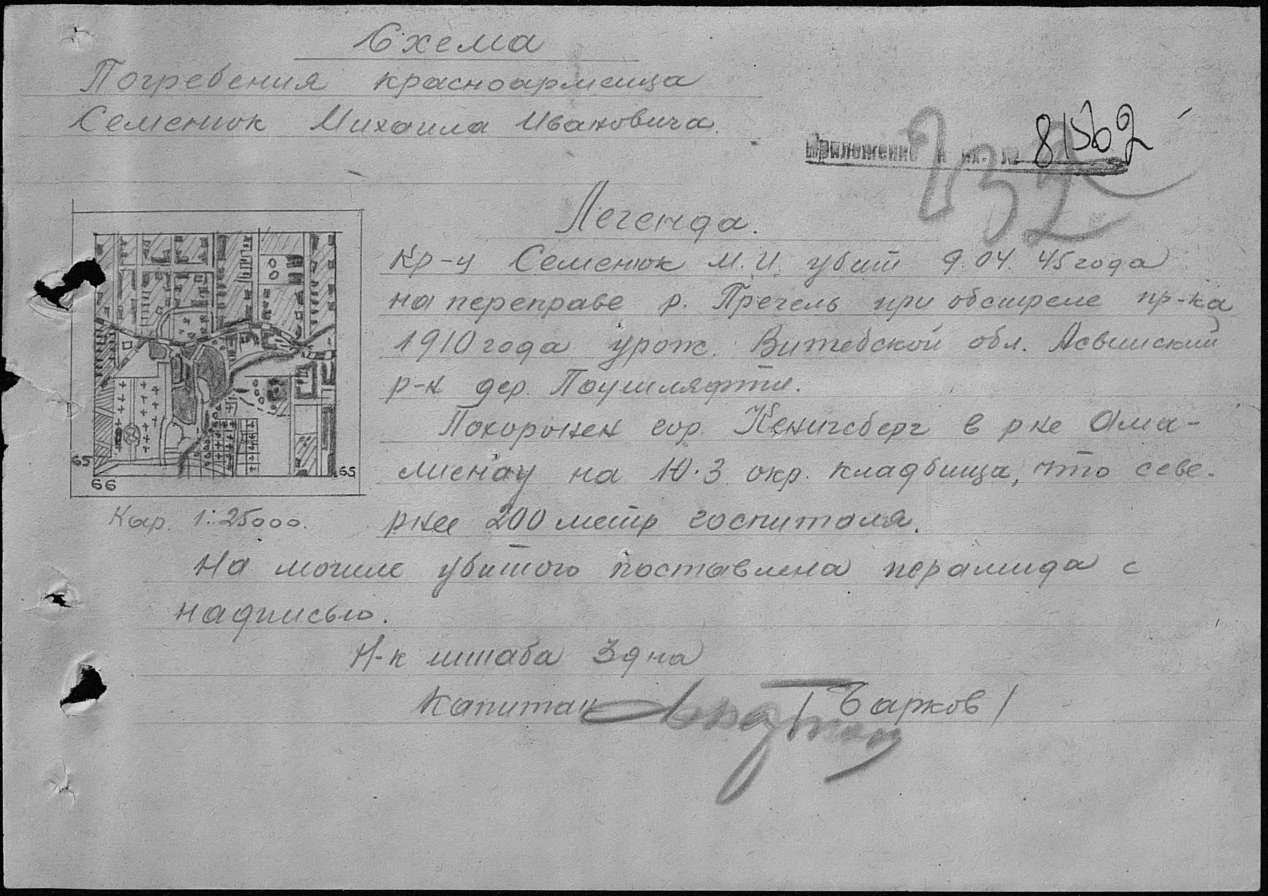 Схема
Погребения красноармейца
Семенюк Михаила Ивановича.
Приложение к вх. № 81562
232
Легенда.
Кр-ц Семенюк М.И. убит 9.04.45 года
на переправе р. Прегель при обстреле пр-ка
1910 года урож. Витебской обл. Асвейский
р-н дер.
Похоронен гор. Кенигсберг в р не Ама-
лиенау на Ю-З окр. кладбища, что севе-
рнее 200 метр госпиталя.
65
65
66
Кар. 1:25000.
На могиле убитого поставлена перамида с
надписью.
Н-к штаба 3 дна
Капитан /Барков/